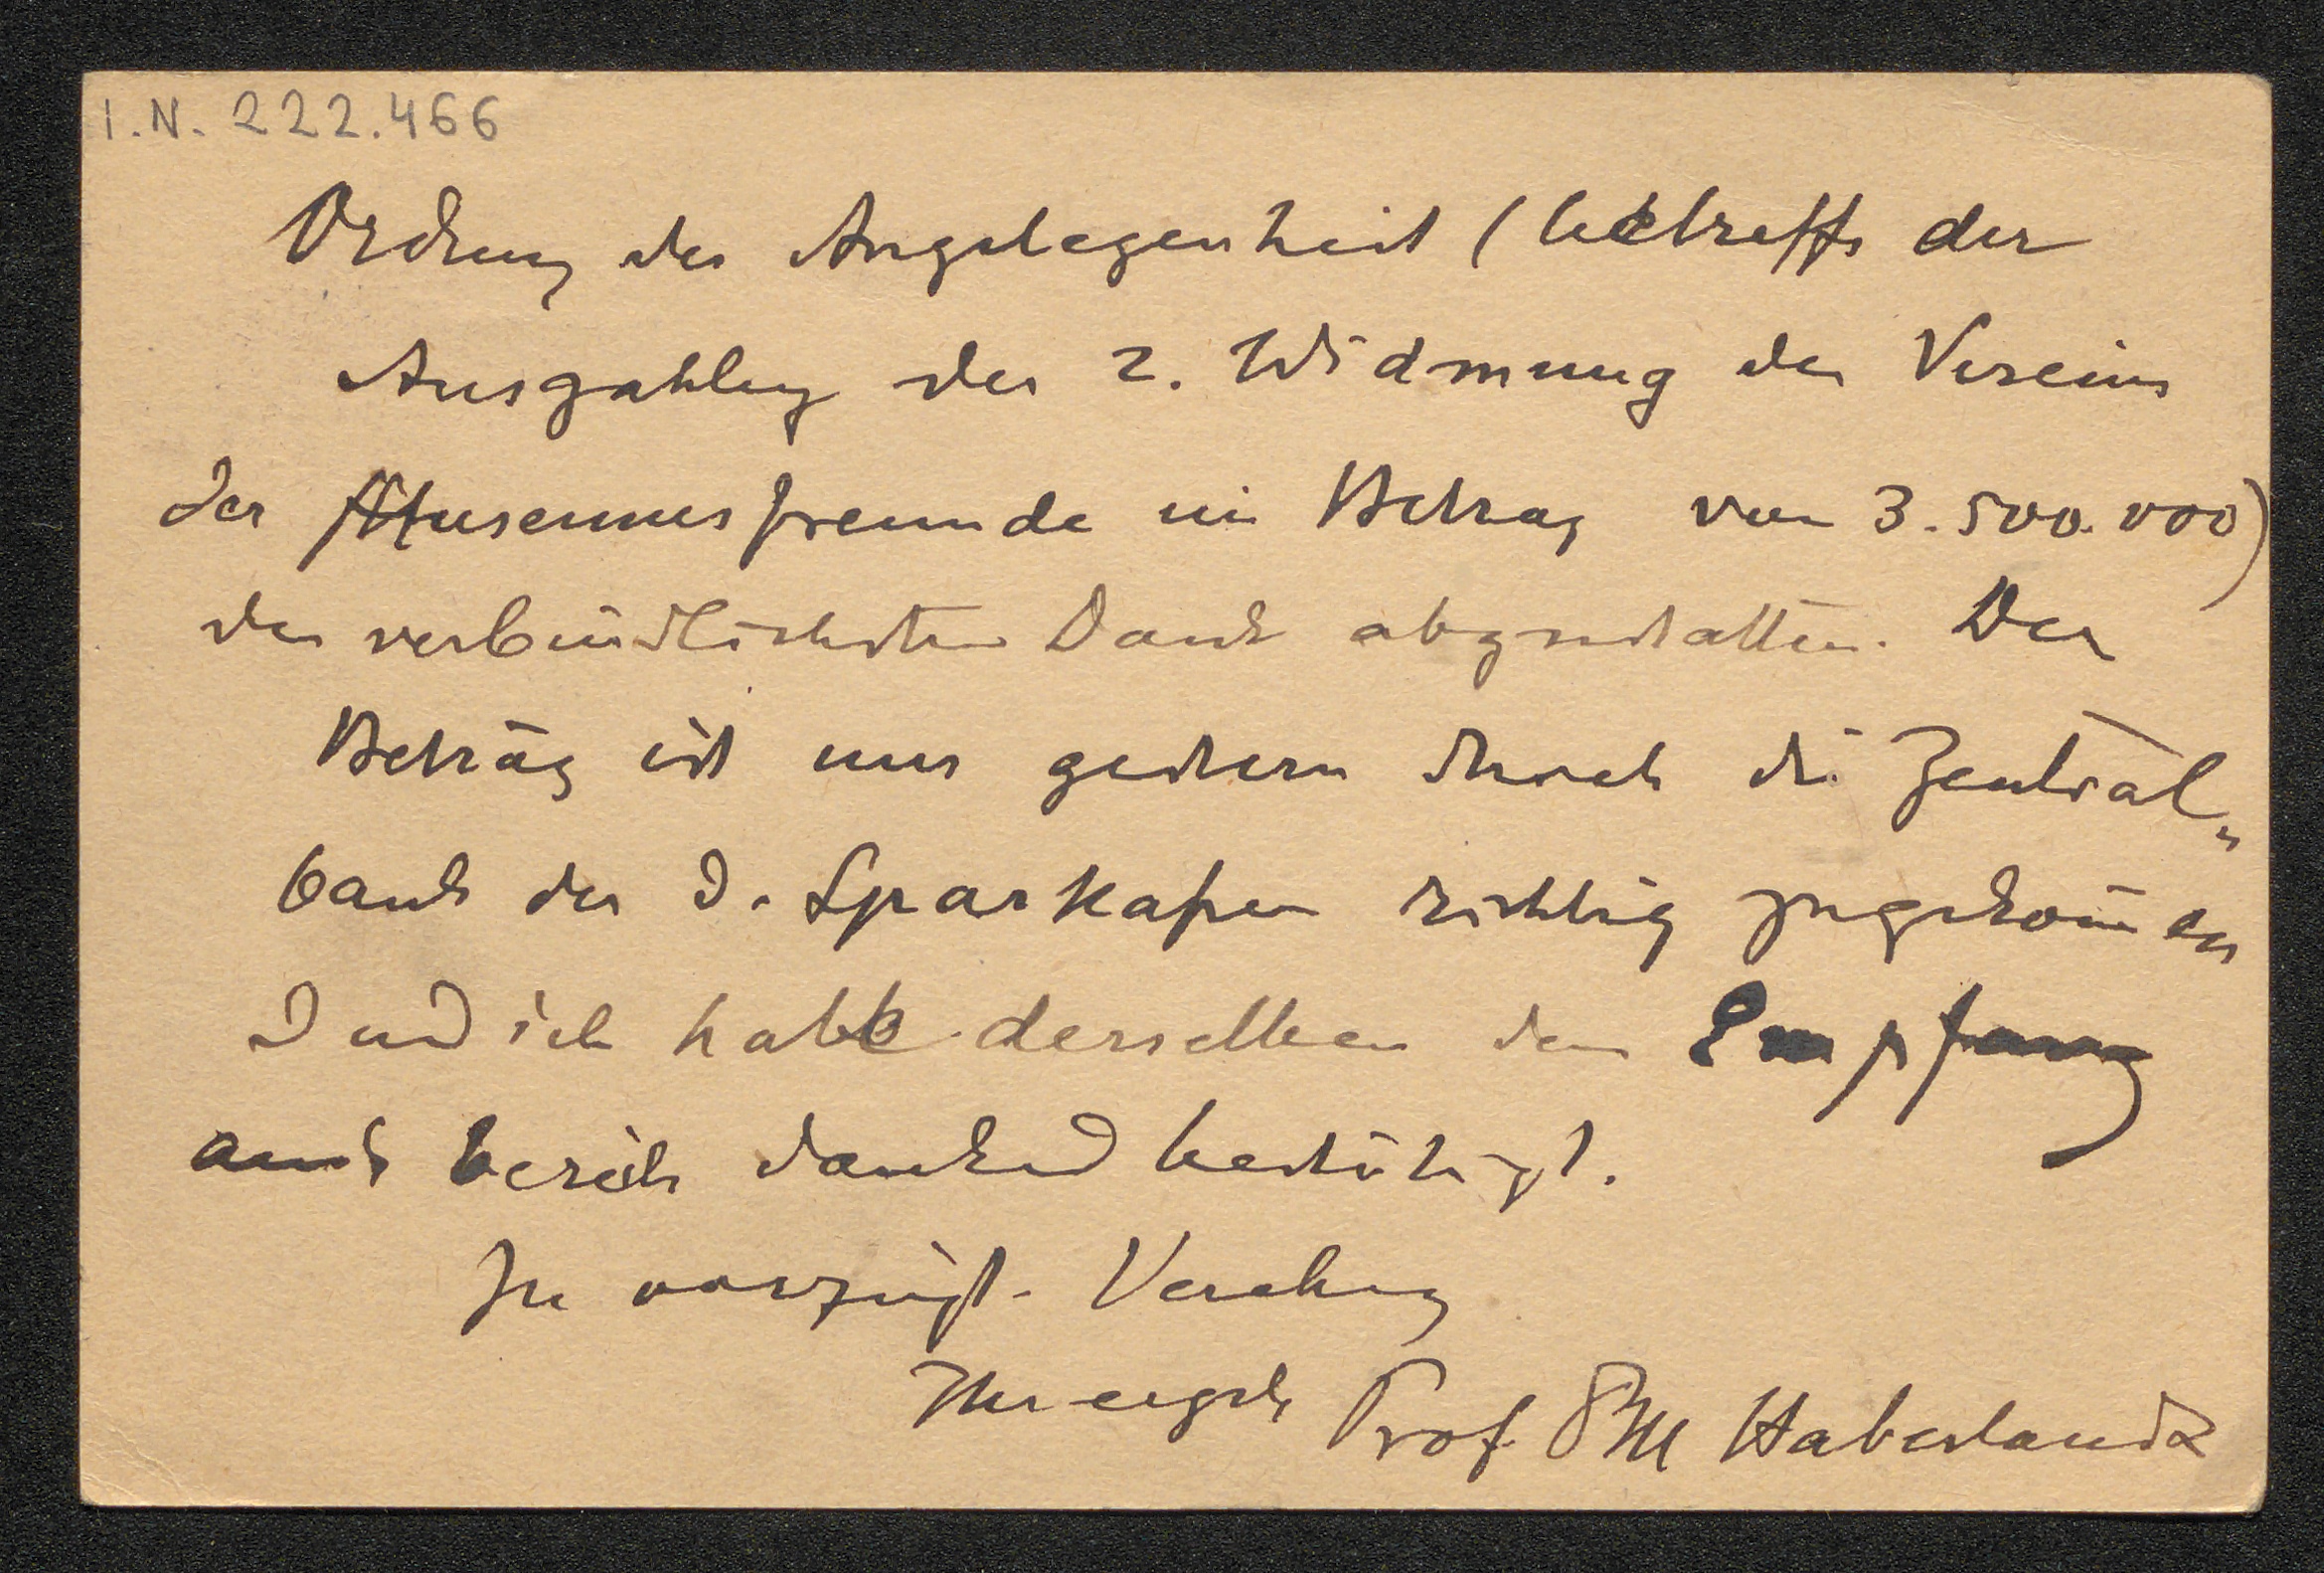 I.N. 222.466
Ordnung der Angelegenheit (betreffs der
Auszahlung der 2. Widmung des Vereins
der Museumsfreunde im Betrag von 3.500.000)
den verbindlichsten Dank abzustatten. Der
Betrag ist uns gestern durch die Zentral-
bank der D. Sparkassen richtig zugekommen
und ich habe derselben den Empfang
auch bereits dankend bestätigt.
In vorzügl. Verehrung
Ihr ergeb. Prof. Dr M Haberlandt